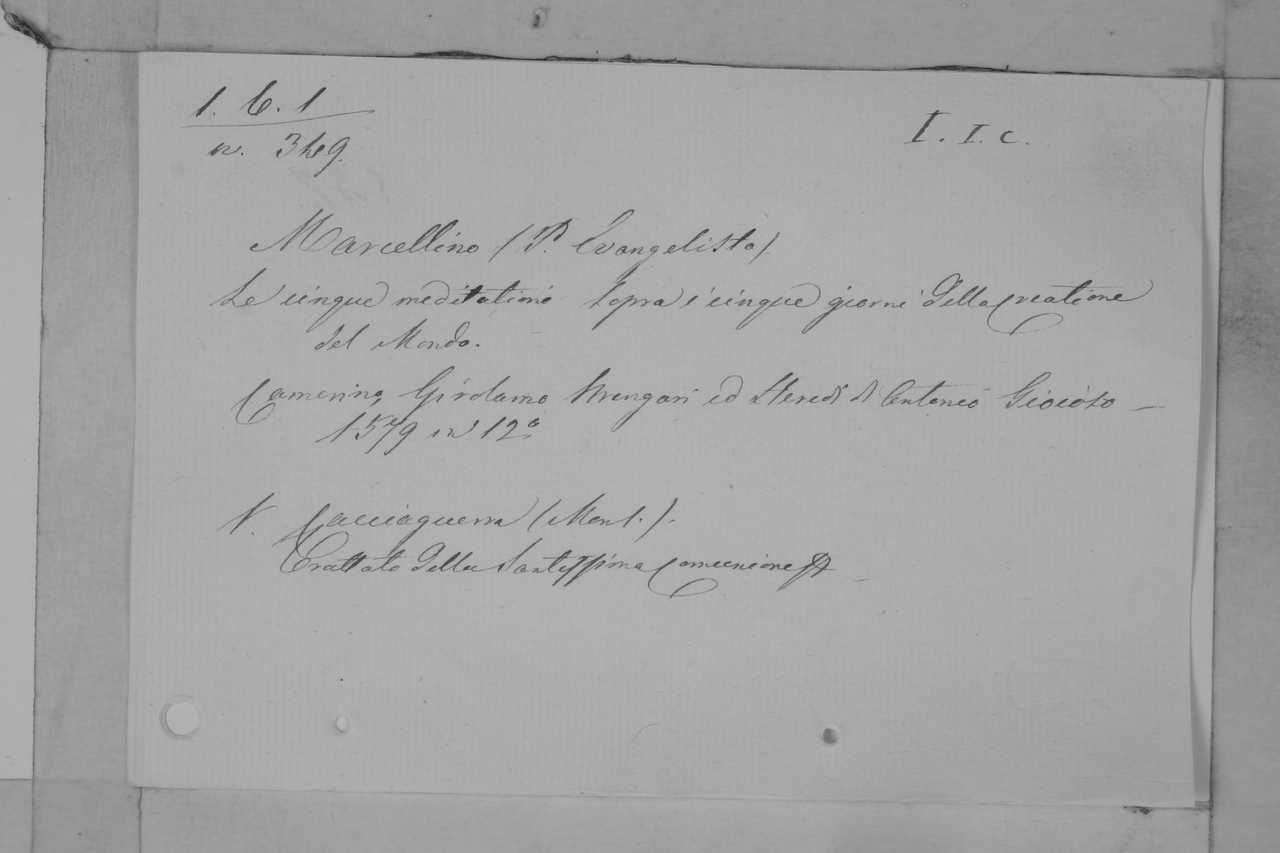 1. 6. 1
I. I. C.
n. 349.
Marcellino (P. Evangelista).
Le cinque meditationi sopra i cinque giorni della creatione
del Mondo.
Camerino, Girolamo Strengari ed Heredi di Antonio Gioioso —
1579 in 12º
V. Cacciaguerra (Mons.).
Trattato della Santissima Comunione